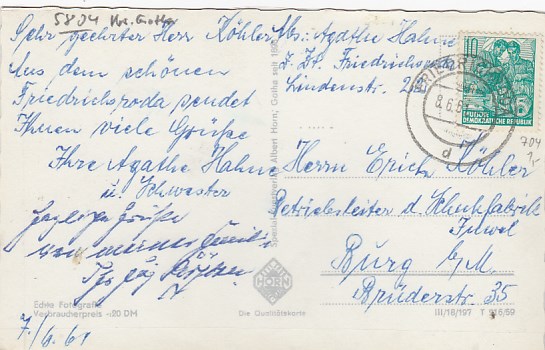 5804 Krs. Gotha
Sehr geehrter Herr Köhler
Aus dem schönen
Friedrichroda sendet
Ihnen viele Grüße
Ihre Agathe Hahne
u. Schwester
Grüße
von meiner
7/6. 61
Echte Fotografie
Verbraucherpreis –20 DM
Albert Horn, Gotha
HORN
Die Qualitätskarte
Abs: Agathe Hahne
z. Zt. Friedrichroda
Lindenstr.
10
DEUTSCHE
DEMOKRATISCHE REPUBLIK
8.6.6
d
704
Herrn Erich Köhler
Betriebsleiter d. Schuhfabrik
Burg b/M.
Brüderstr. 35
III/18/197 T 916/59